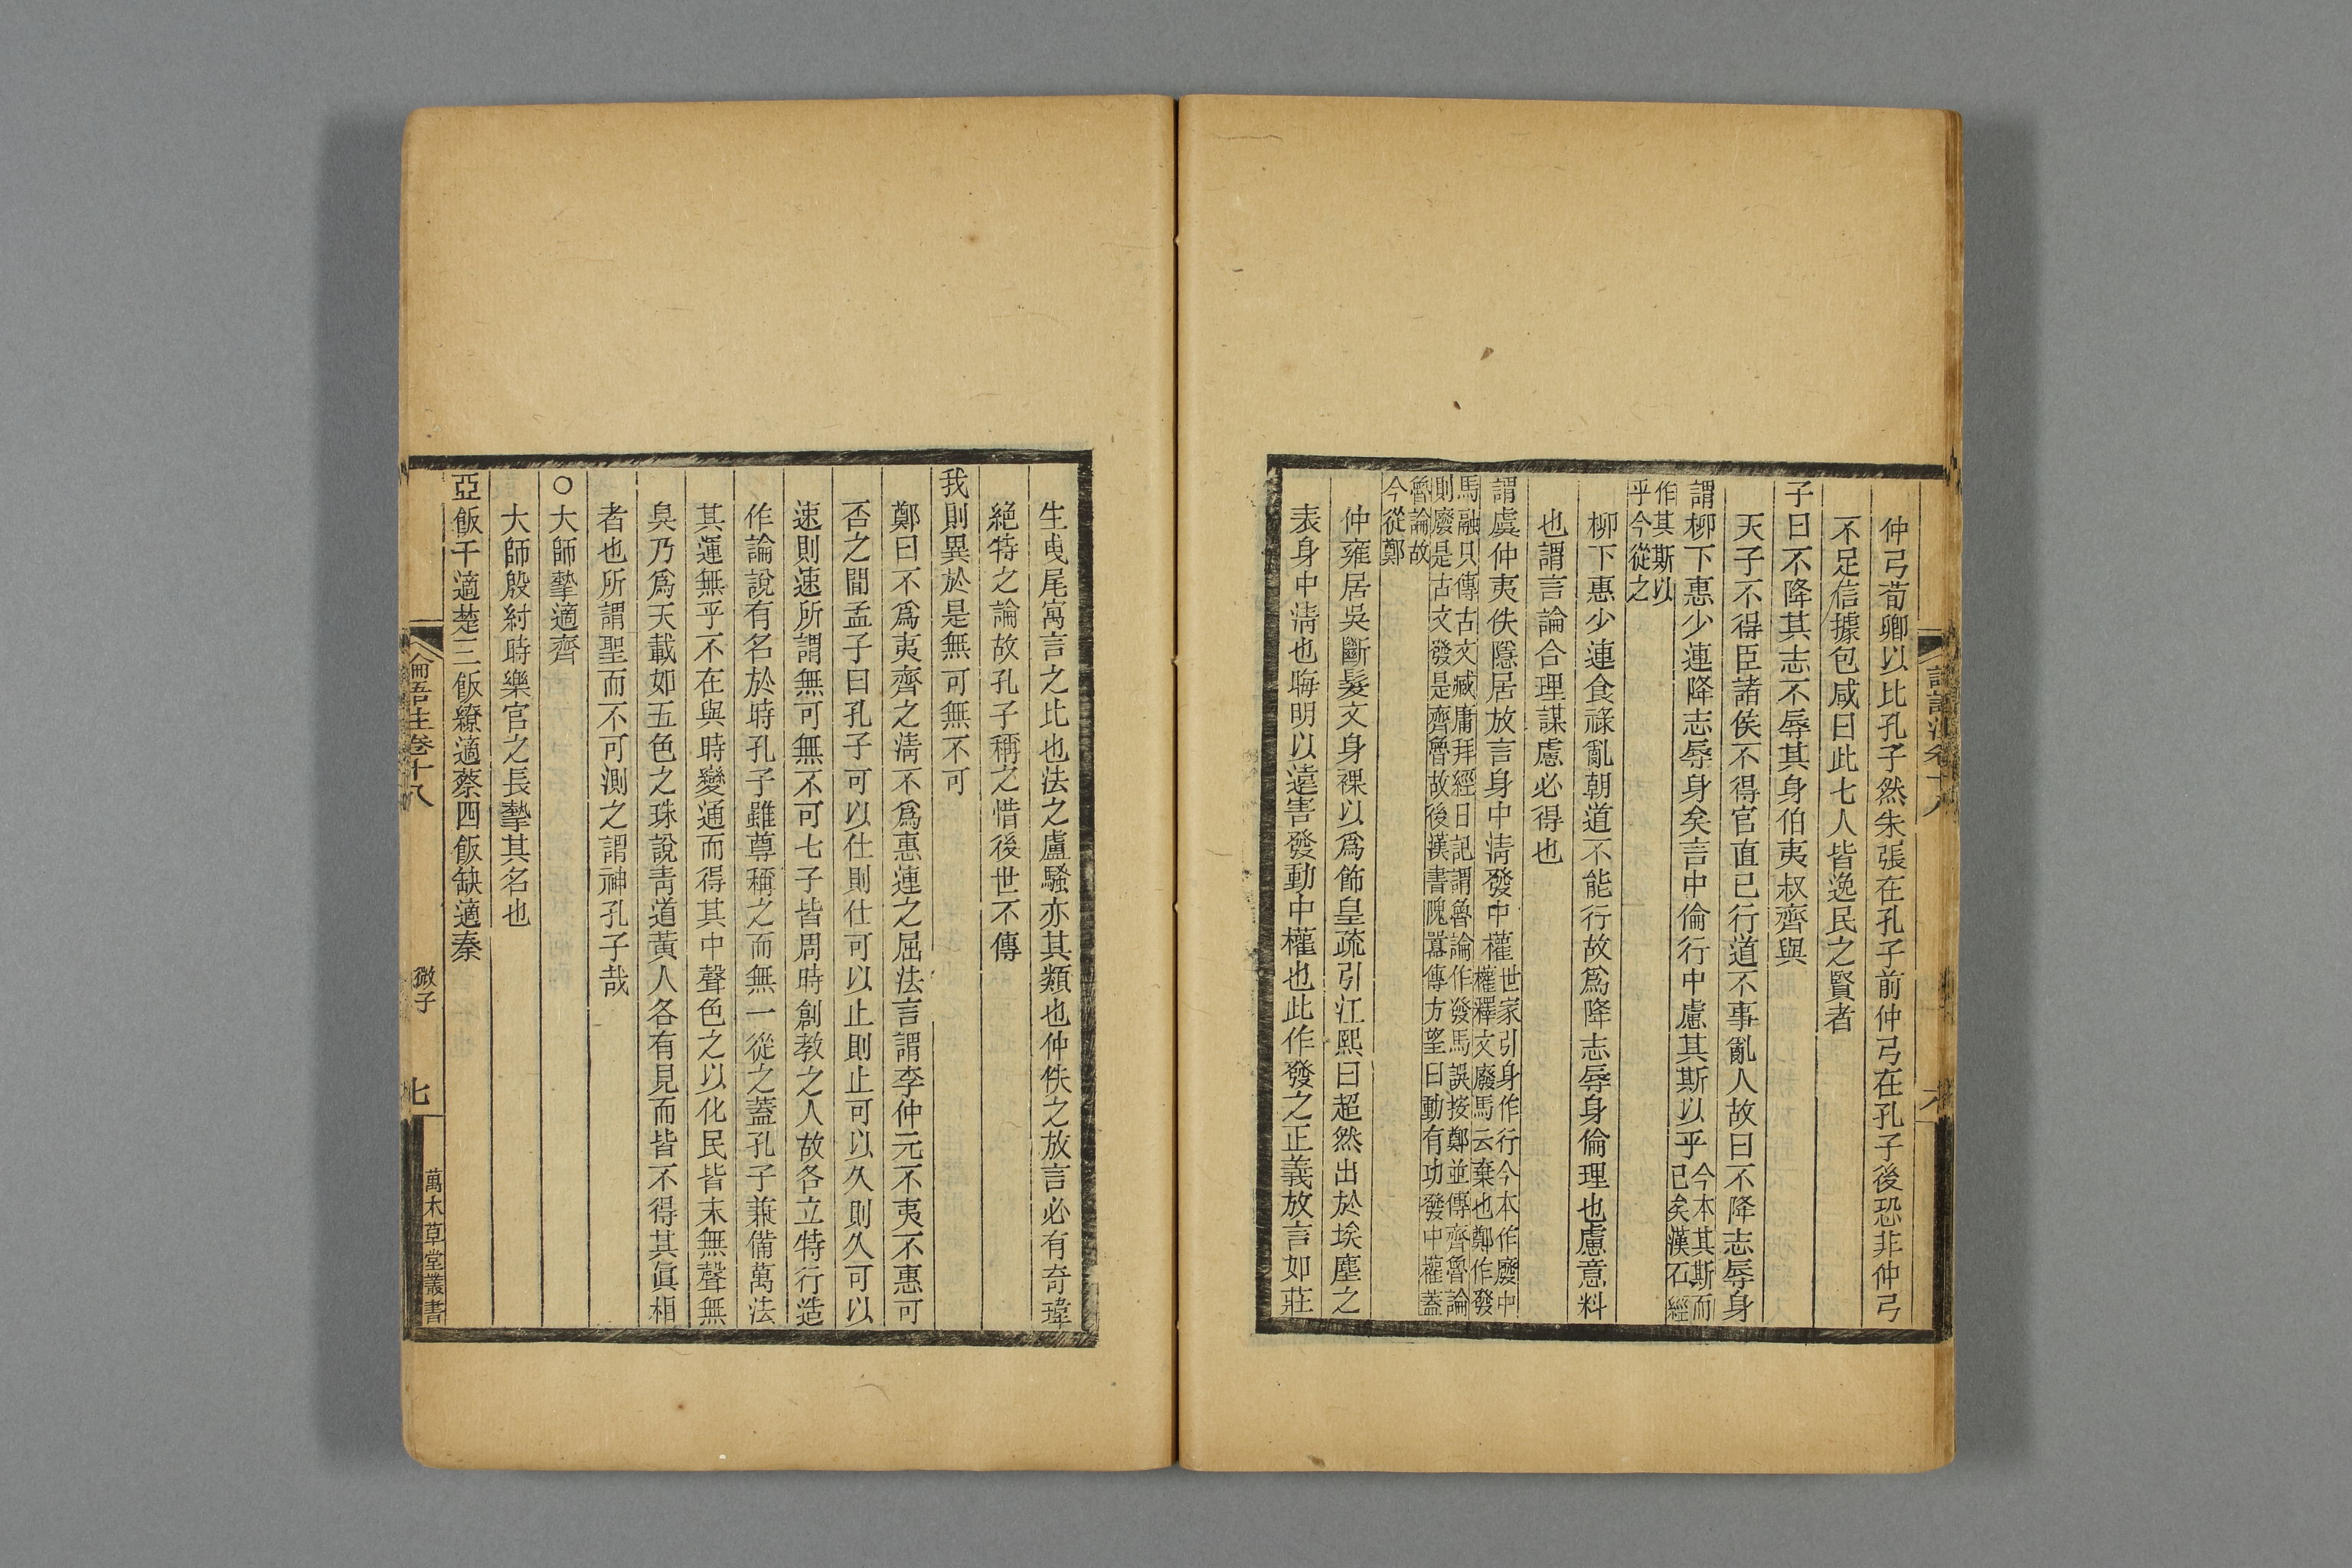 仲弓荀卿以比孔子然朱張在孔子前仲弓在孔子後恐非仲弓
不足信據包咸曰此七人皆逸民之賢者
子曰不降其志不辱其身伯夷叔齊與
天子不得臣諸侯不得官直己行道不事亂人故曰不降志辱身
謂柳下惠少連降志辱身矣言中倫行中慮其斯以乎今本其斯而
已矣漢石經
作其斯以
乎今從之
柳下惠少連食祿亂朝道不能行故爲降志辱身倫理也慮意料
也謂言論合理謀慮必得也
謂虞仲夷佚隱居放言身中清發中權世家引身作行今本作廢中
權釋文廢馬云棄也鄭作發
馬融只傳古文臧庸拜經日記謂魯論作發馬誤按鄭並傳齊魯論
則廢是古文發是齊魯故後漢書隗囂傳方望曰動有功發中權蓋
魯論故
今從鄭
仲雍居吳斷髮文身裸以爲飾皇疏引江熙曰超然出於埃塵之
表身中清也晦明以遠害發動中權也此作發之正義放言如莊
論語注卷十八
生曳尾寓言之比也法之盧騷亦其類也仲佚之放言必有奇瑋
絕特之論故孔子稱之惜後世不傳
我則異於是無可無不可
鄭曰不爲夷齊之清不爲惠連之屈法言謂李仲元不夷不惠可
否之間孟子曰孔子可以仕則仕可以止則止可以久則久可以
速則速所謂無可無不可七子皆周時創教之人故各立特行造
作論說有名於時孔子雖尊稱之而無一從之蓋孔子兼備萬法
其運無乎不在與時變通而得其中聲色之以化民皆末無聲無
臭乃爲天載如五色之珠說青道黃人各有見而皆不得其眞相
者也所謂聖而不可測之謂神孔子哉
○大師摯適齊
大師殷紂時樂官之長摯其名也
亞飯干適楚三飯繚適蔡四飯缺適秦
論語注卷十八
微子
七
萬木草堂叢書